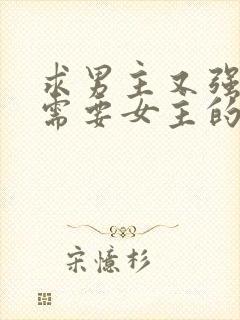 求男主又强
需要女主的
宋憶杉